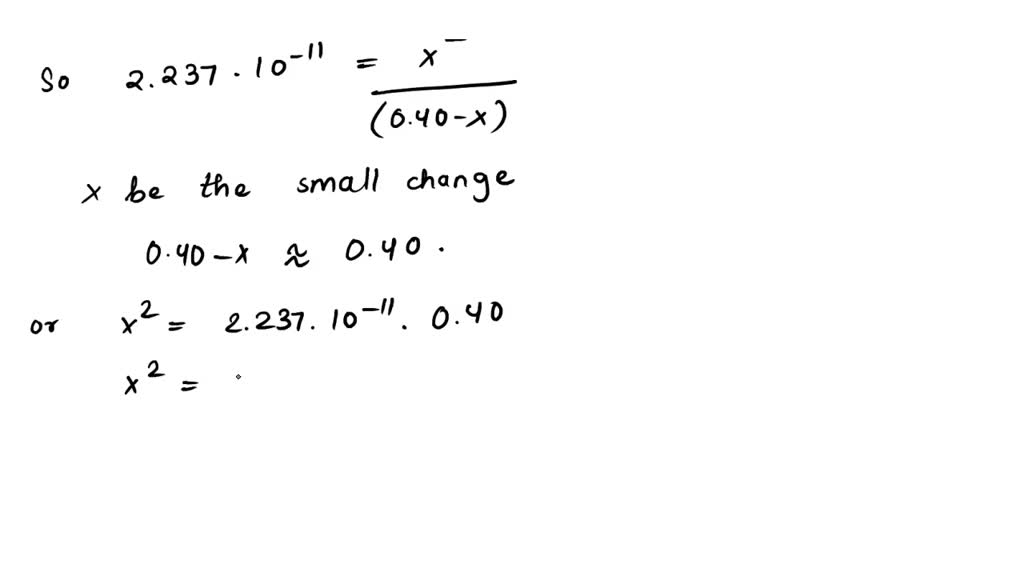 So 2.237 · 10⁻¹¹ = x⁻ / (0.40-x)
x be the small change
0.40-x ≈ 0.40 .
or x² = 2.237 · 10⁻¹¹ · 0.40
x² =